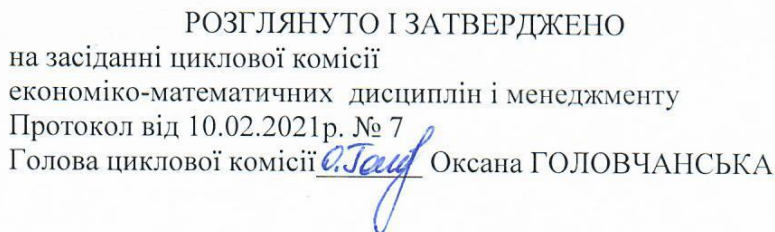 РОЗГЛЯНУТО І ЗАТВЕРДЖЕНО
на засіданні циклової комісії
економіко-математичних дисциплін і менеджменту
Протокол від 10.02.2021р. № 7
Голова циклової комісії Оксана ГОЛОВЧАНСЬКА